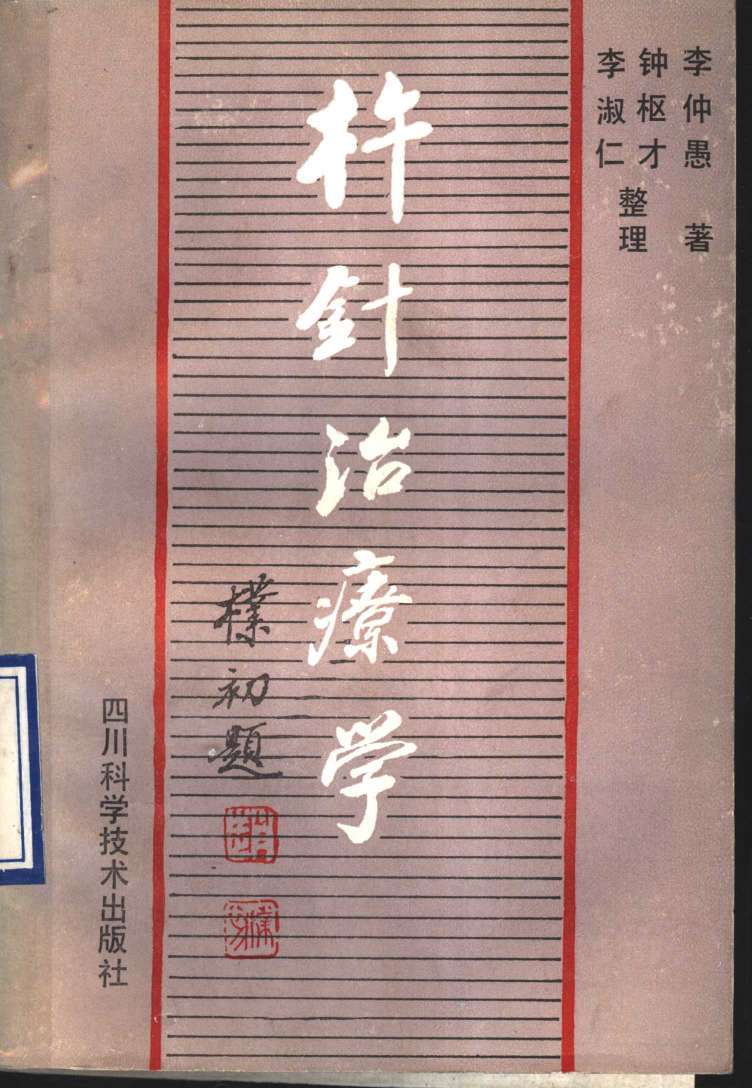 李仲愚 著
钟枢才
李淑仁
整理
杵針治療学
樸初题
四川科学技术出版社